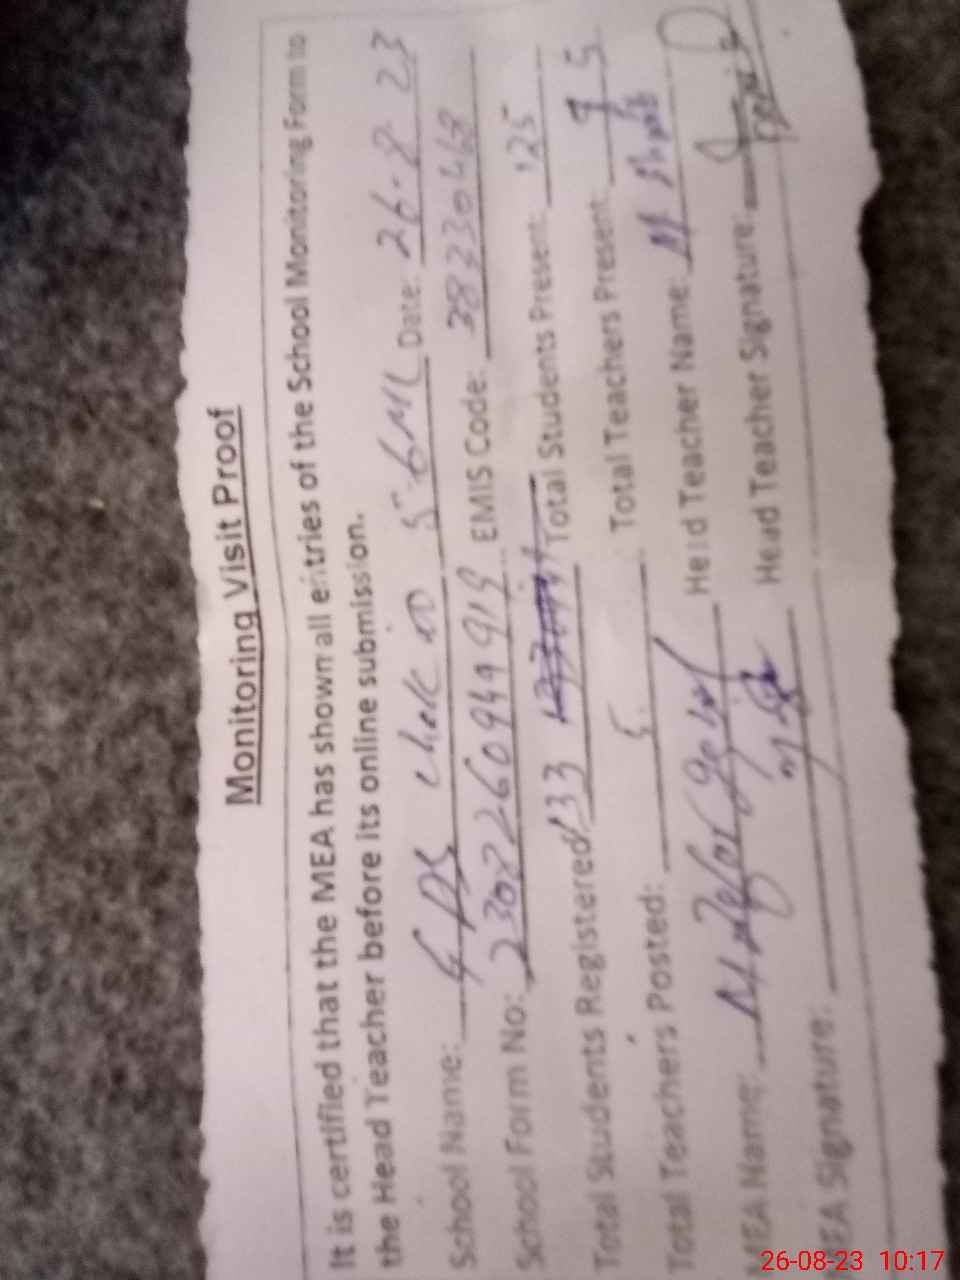 Monitoring Visit Proof
It is certified that the MEA has shown all entries of the School Monitoring Form to
the Head Teacher before its online submission.
School Name: GPS Chak no Date: 26-8-23
School Form No: EMIS Code: 38330468
Total Students Registered: 133 Total Students Present: 125
Total Teachers Posted: 5 Total Teachers Present: 5
MEA Name: Head Teacher Name: M
MEA Signature: Head Teacher Signature:
26-08-23 10:17